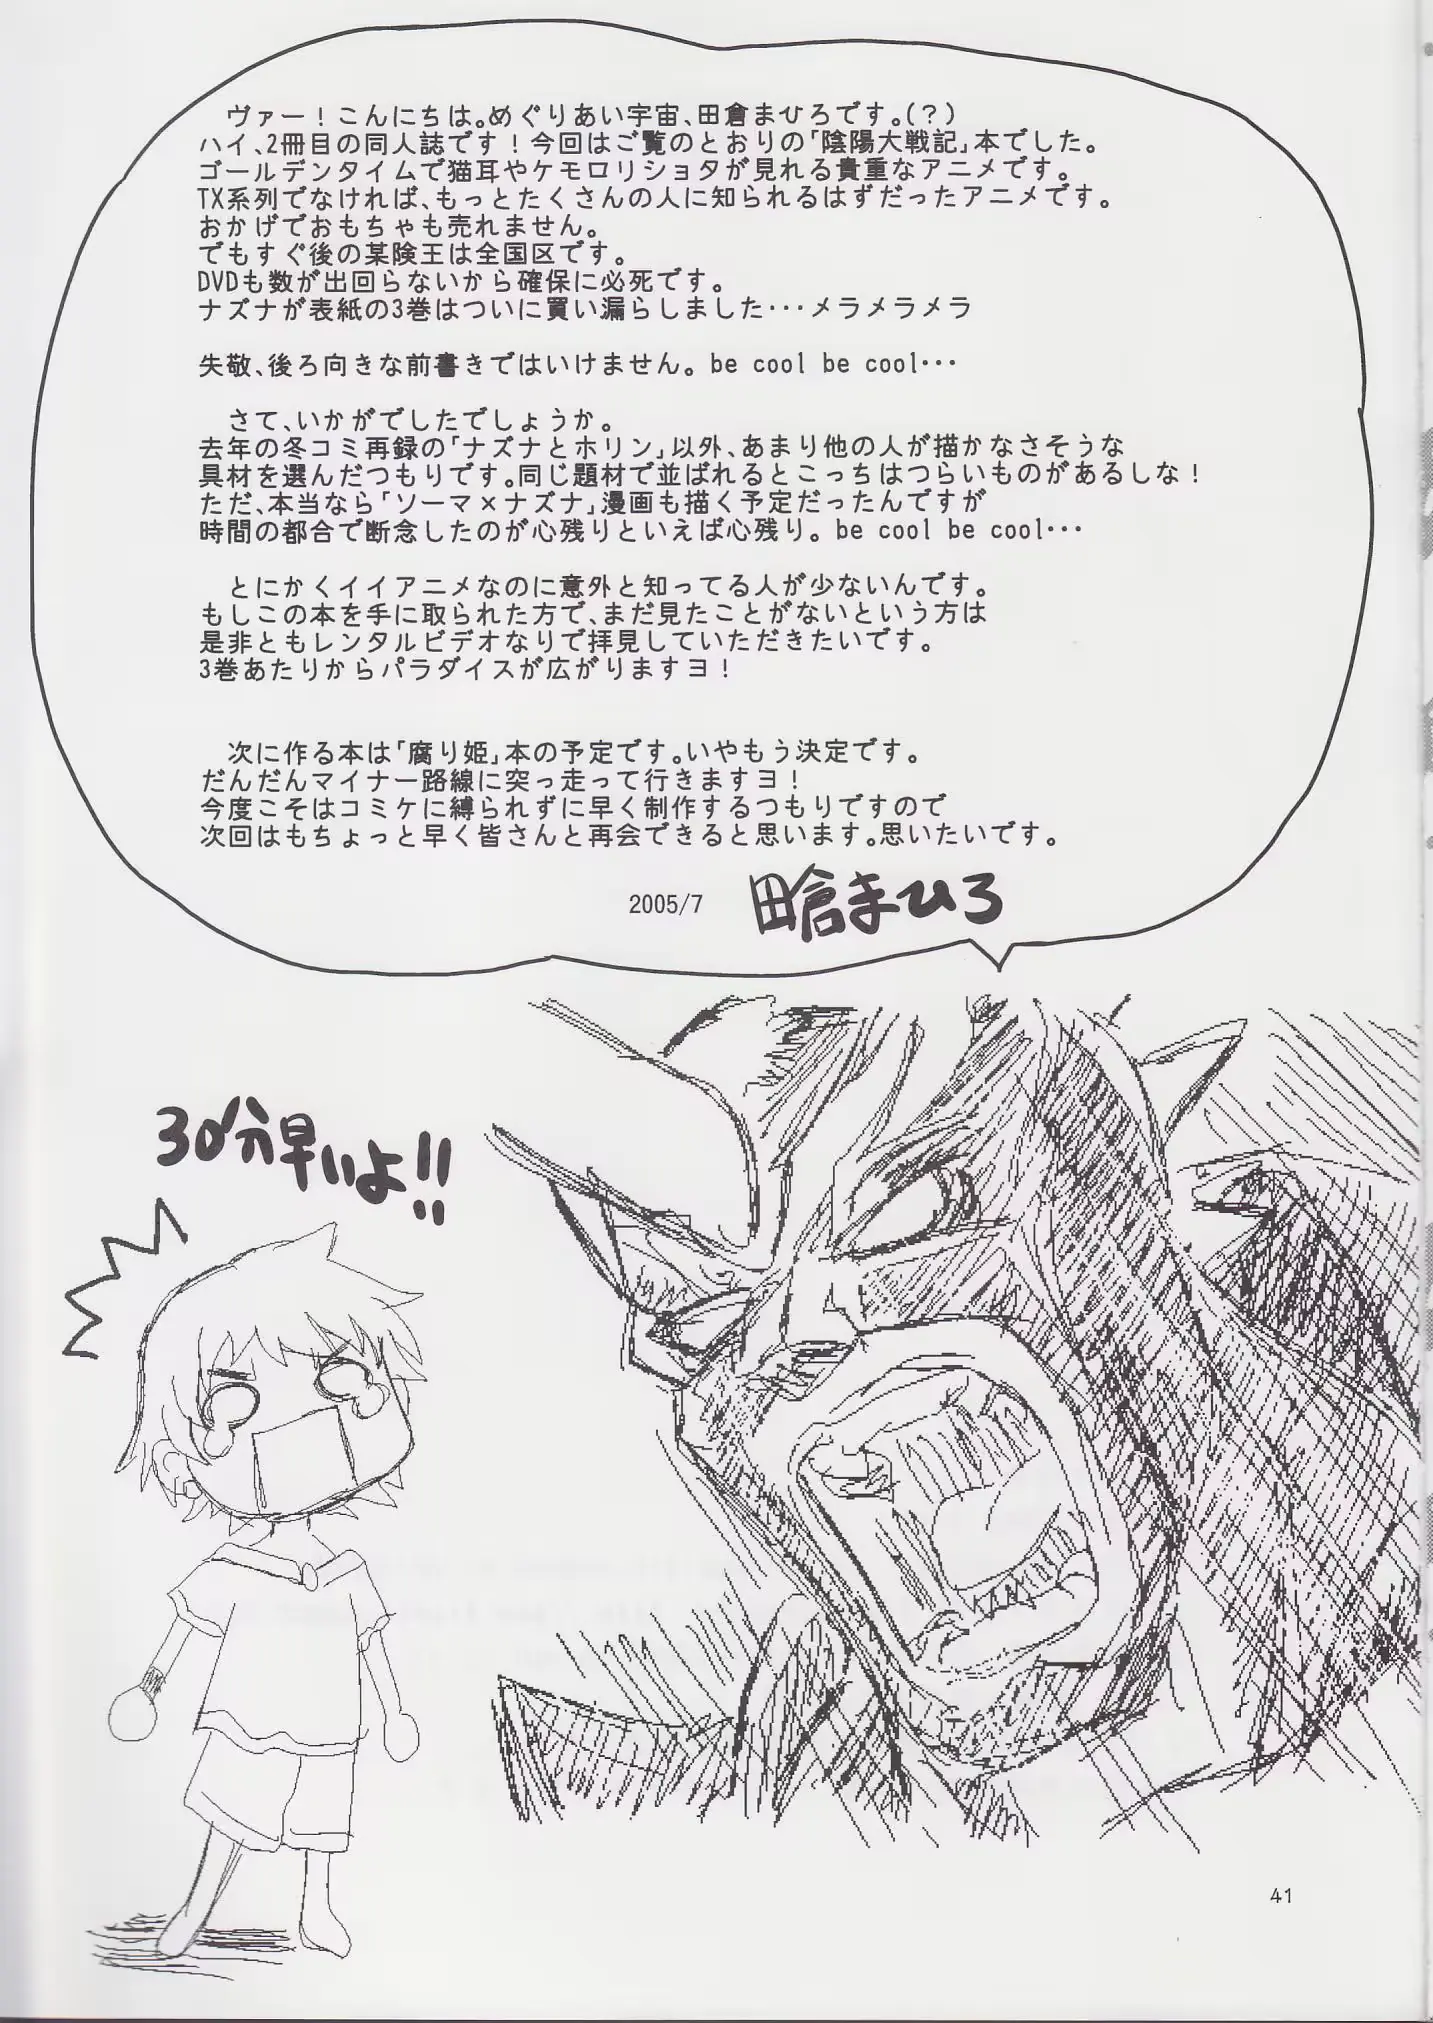 ヴァー！こんにちは。めぐりあい宇宙、田倉まひろです。(？)
ハイ、2冊目の同人誌です！今回はご覧のとおりの「陰陽大戦記」本でした。
ゴールデンタイムで猫耳やケモロリショタが見れる貴重なアニメです。
TX系列でなければ、もっとたくさんの人に知られるはずだったアニメです。
おかげでおもちゃも売れません。
でもすぐ後の某険王は全国区です。
DVDも数が出回らないから確保に必死です。
ナズナが表紙の3巻はついに買い漏らしました･･･メラメラメラ
失敬、後ろ向きな前書きではいけません。be cool be cool･･･
さて、いかがでしたでしょうか。
去年の冬コミ再録の「ナズナとホリン」以外、あまり他の人が描かなさそうな
具材を選んだつもりです。同じ題材で並ばれるとこっちはつらいものがあるしな！
ただ、本当なら「ソーマ×ナズナ」漫画も描く予定だったんですが
時間の都合で断念したのが心残りといえば心残り。be cool be cool･･･
とにかくイイアニメなのに意外と知ってる人が少ないんです。
もしこの本を手に取られた方で、まだ見たことがないという方は
是非ともレンタルビデオなりで拝見していただきたいです。
3巻あたりからパラダイスが広がりますヨ！
次に作る本は「腐り姫」本の予定です。いやもう決定です。
だんだんマイナー路線に突っ走って行きますヨ！
今度こそはコミケに縛られずに早く制作するつもりですので
次回はもちょっと早く皆さんと再会できると思います。思いたいです。
2005/7 田倉まひろ
30分早いよ!!
41